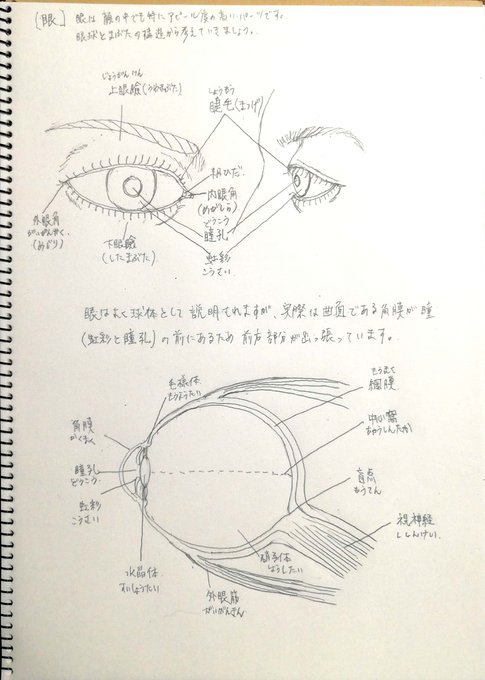 [眼] 眼は顔の中でも特にアピール度の高いパーツです。
眼球とまぶたの構造から考えていきましょう。
じょうがんけん
上眼瞼(うわまぶた)
しょうもう
睫毛(まつげ)
半月ひだ
内眼角
(めがしら)
どうこう
瞳孔
虹彩
こうさい
外眼角
がいがんかく
(めじり)
下眼瞼
(したまぶた)
眼はよく球体として説明されますが、実際は曲面である角膜が瞳
(虹彩と瞳孔)の前にあるため前方部分が出っ張っています。
毛様体
もうようたい
角膜
かくまく
瞳孔
どうこう
虹彩
こうさい
水晶体
すいしょうたい
外眼筋
がいがんきん
硝子体
しょうしたい
もうまく
網膜
中心窩
ちゅうしんか
盲点
もうてん
視神経
ししんけい